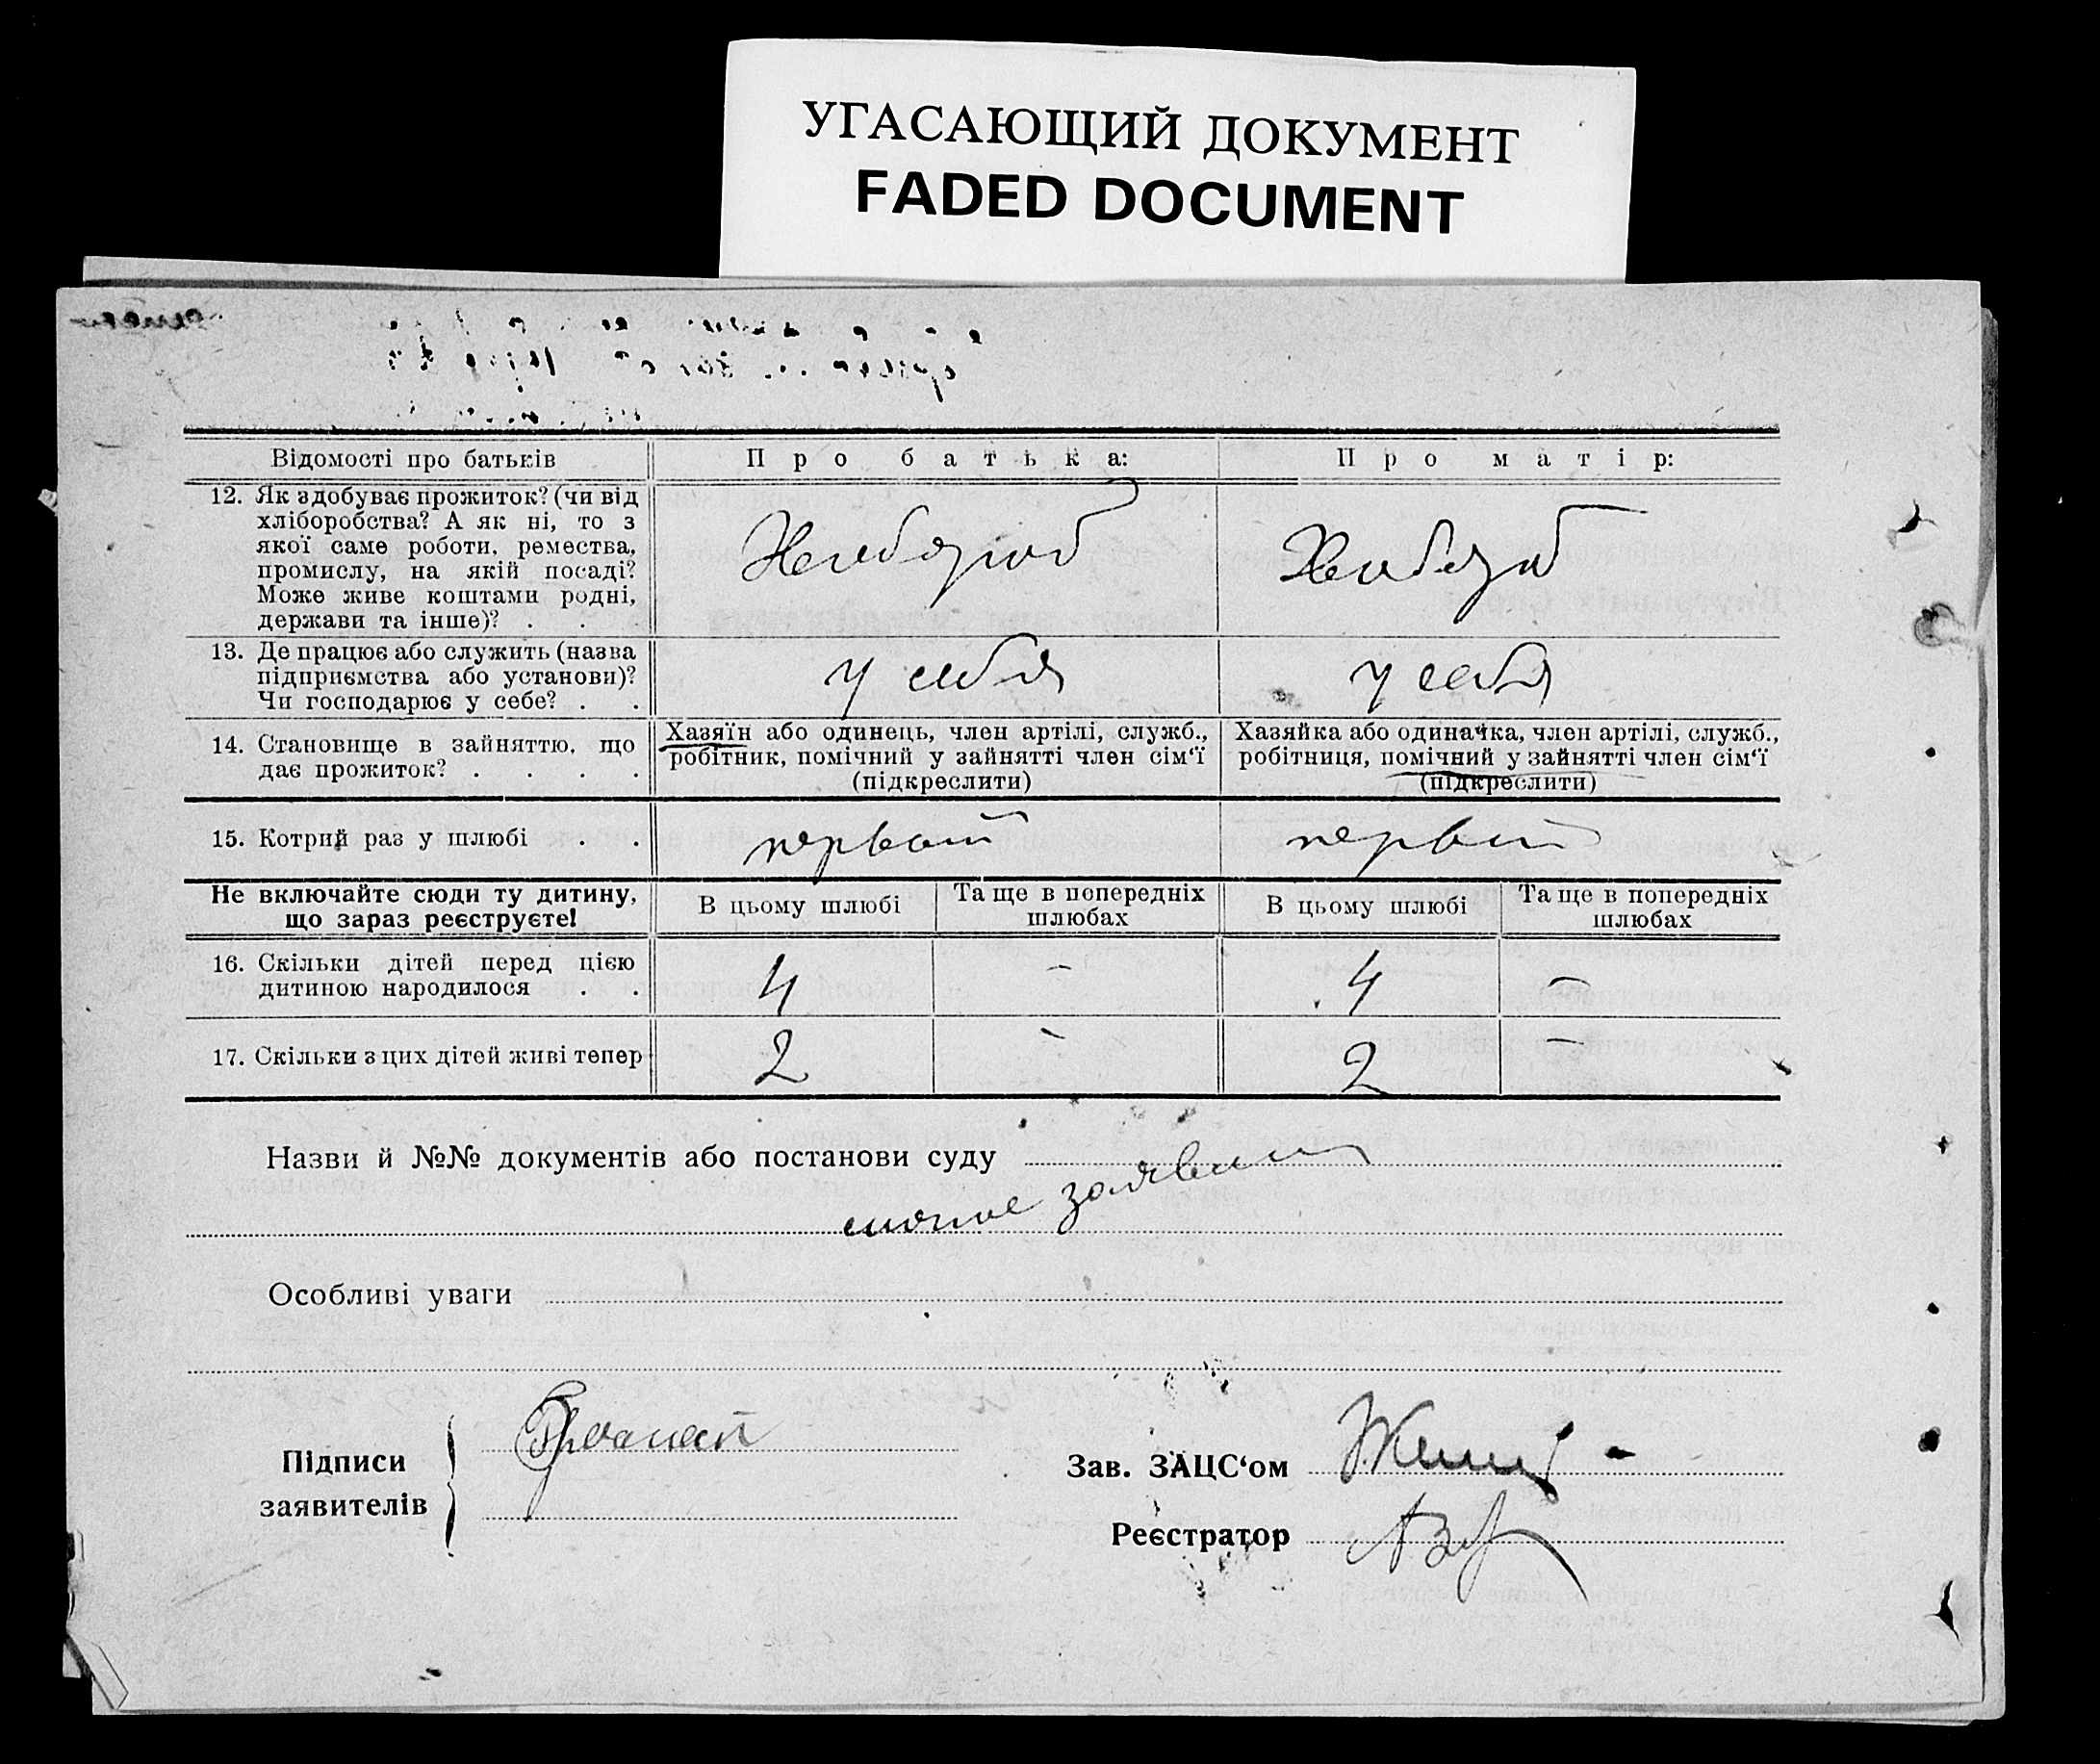 УГАСАЮЩИЙ ДОКУМЕНТ
FADED DOCUMENT
Відомості про батьків
Про батька:
Про матір:
12. Як здобуває прожиток? (чи від
хліборобства? А як ні, то з
якої саме роботи, ремества,
промислу, на якій посаді?
Може живе коштами родні,
держави та інше)? . .
13. Де працює або служить (назва
підприємства або установи)?
Чи господарює у себе? . .
у себя
у себя
14. Становище в зайняттю, що
дає прожиток? . . . .
Хазяїн або одинець, член артілі, служб.,
робітник, помічний у зайнятті член сім‘ї
(підкреслити)
Хазяйка або одиначка, член артілі, служб.,
робітниця, помічний у зайнятті член сім‘ї
(підкреслити)
15. Котрий раз у шлюбі . .
первый
первый
Не включайте сюди ту дитину,
що зараз реєструєте!
В цьому шлюбі
Та ще в попередніх
шлюбах
В цьому шлюбі
Та ще в попередніх
шлюбах
16. Скільки дітей перед цією
дитиною народилося . .
4
-
4
-
17. Скільки з цих дітей живі тепер
2
-
2
-
Назви й №№ документів або постанови суду
Особливі уваги
Підписи
заявителів
Зав. ЗАЦС‘ом
Реєстратор